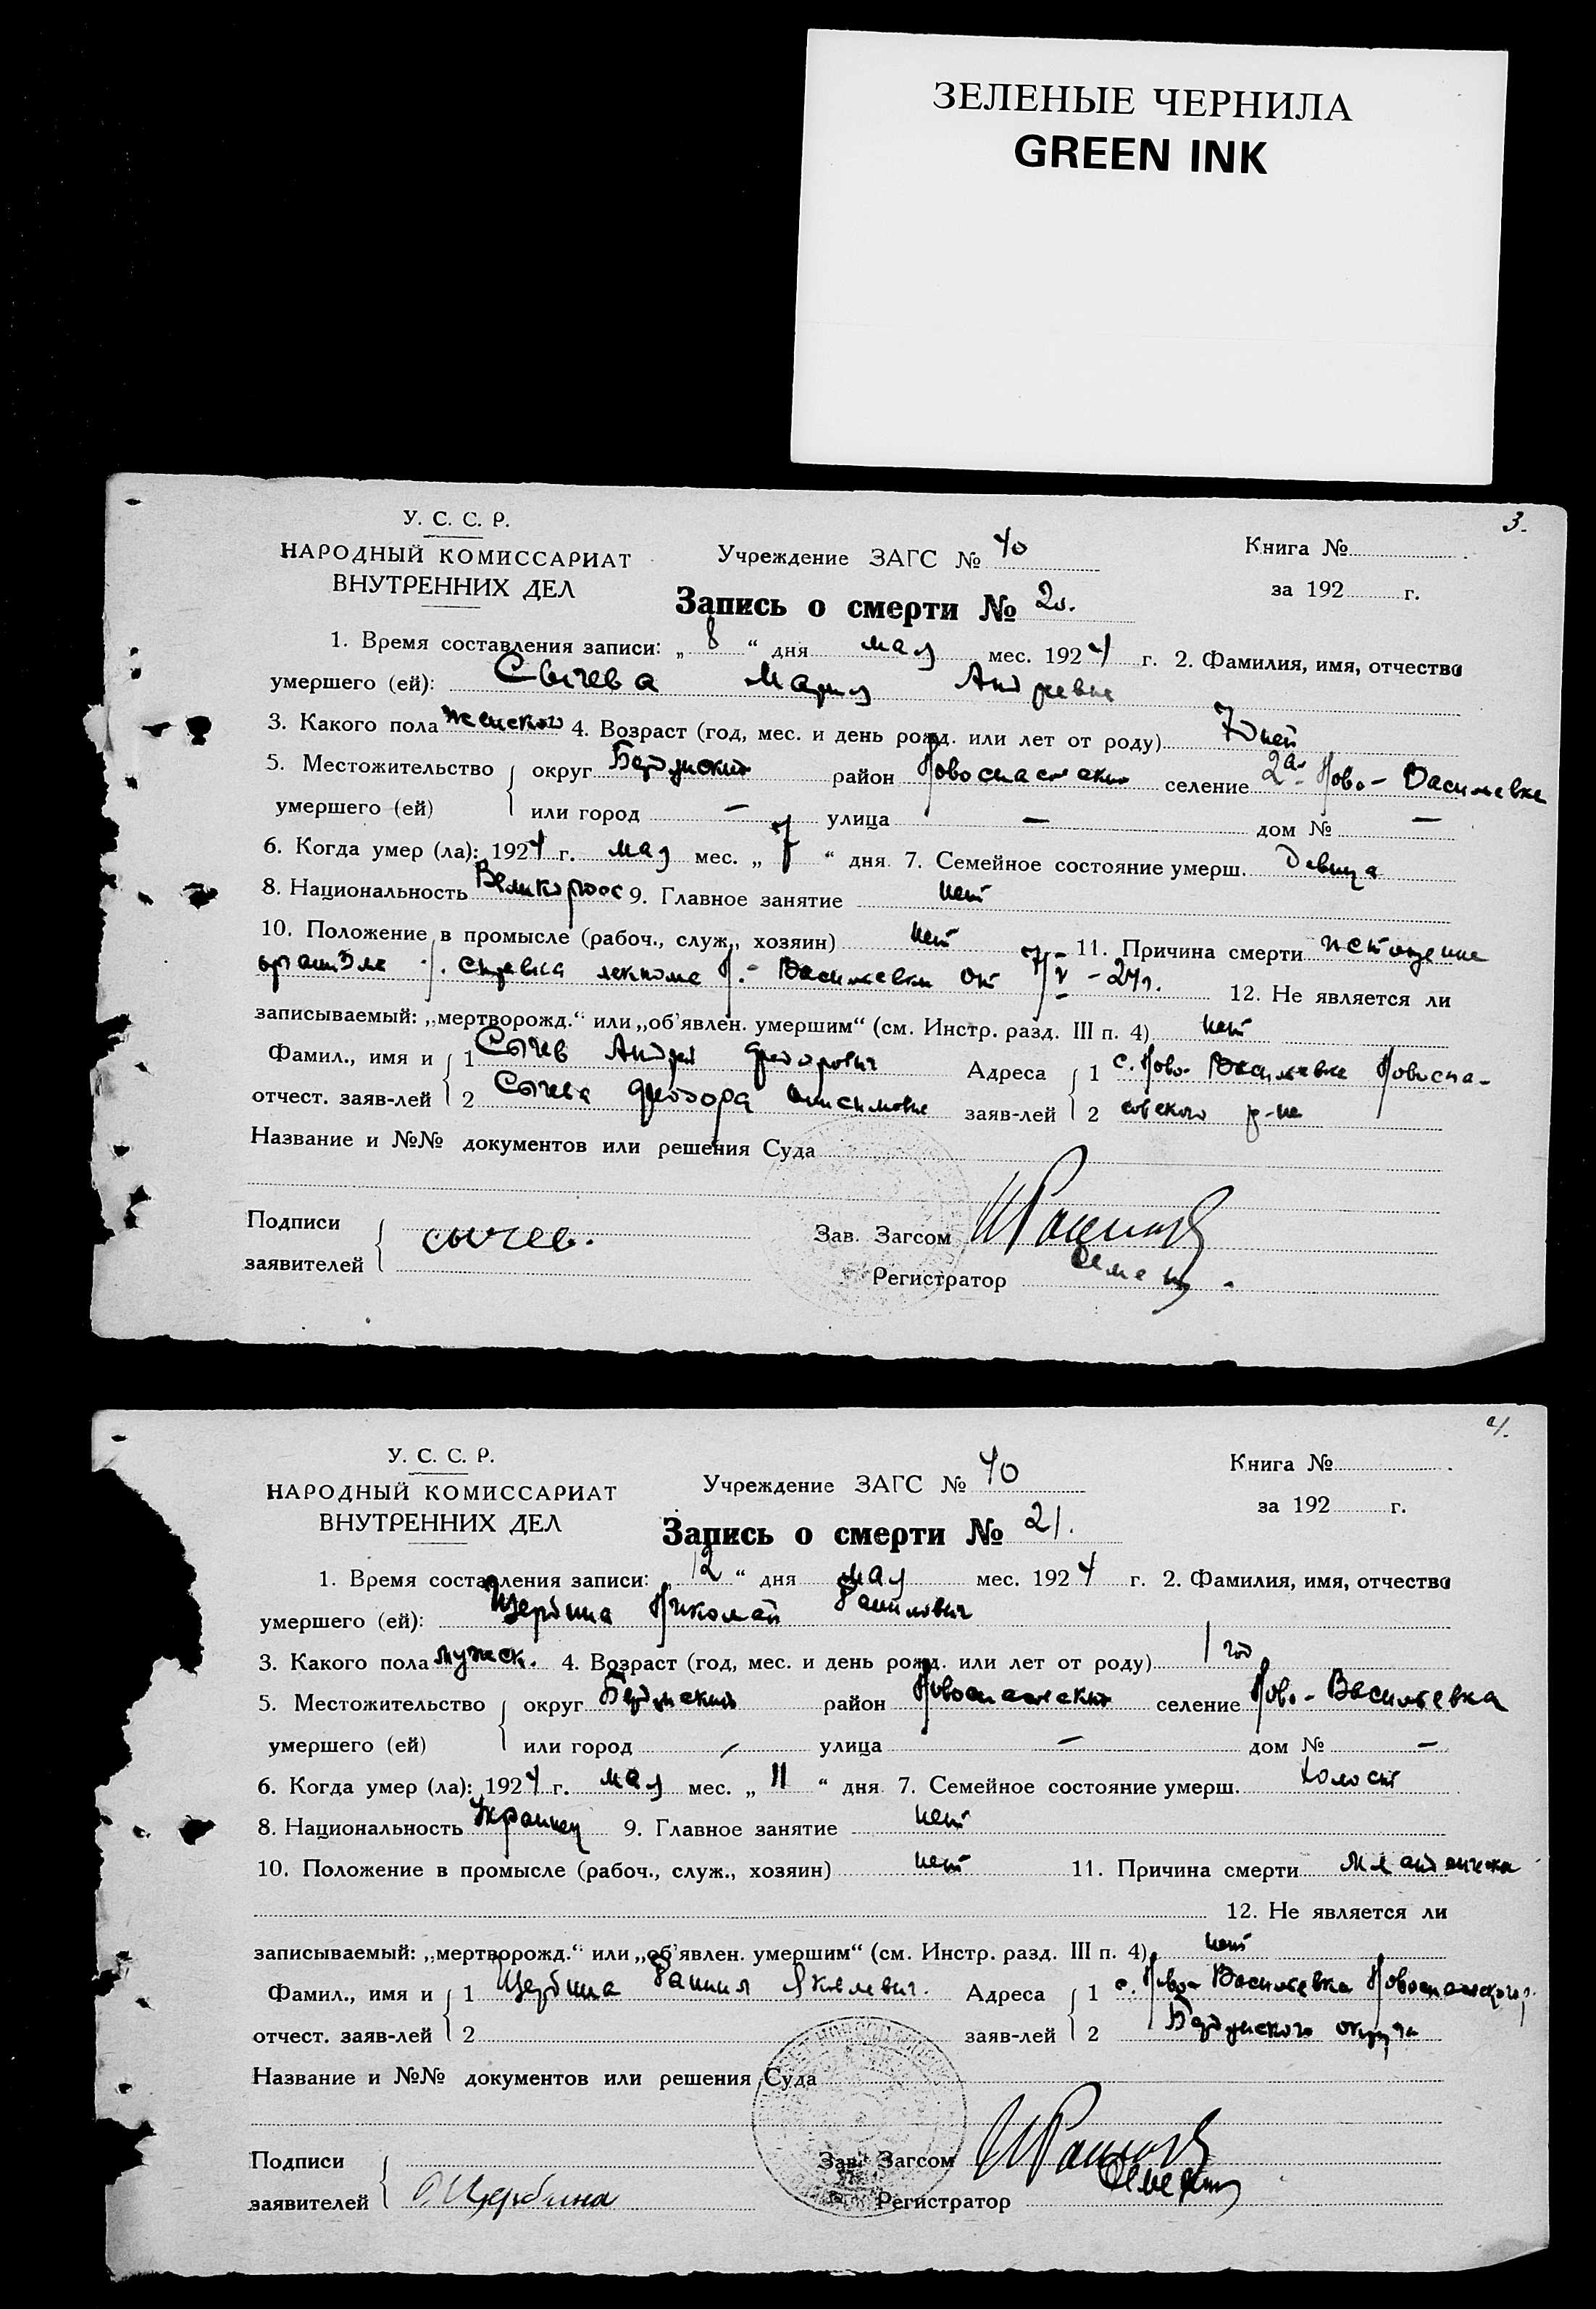 ЗЕЛЕНЫЕ ЧЕРНИЛА
GREEN INK
3.
У. С. С. Р.
НАРОДНЫЙ КОМИССАРИАТ
ВНУТРЕННИХ ДЕЛ
Учреждение ЗАГС № 40
Книга №
за 192 г.
Запись о смерти № 20.
1. Время составления записи: „ 8 “ дня мая мес. 1924 г. 2. Фамилия, имя, отчество
умершего (ей): Сычева Мария Андреевна
3. Какого пола женского 4. Возраст (год, мес. и день рожд. или лет от роду) 7 дней
5. Местожительство округ Бердянский район Новоспасский селение 2ая Ново-Васильевка
умершего (ей) или город — улица — дом № —
6. Когда умер (ла): 1924 г. мая мес. „ 7 “ дня 7. Семейное состояние умерш. Девица
8. Национальность Великоросс 9. Главное занятие нет
10. Положение в промысле (рабоч., служ., хозяин) нет 11. Причина смерти истощение
справка лекпома Н.-Васильевки от 7/V-24г. 12. Не является ли
записываемый: „мертворожд.“ или „об'явлен. умершим“ (см. Инстр. разд. III п. 4) нет
Фамил., имя и 1 Сычев Андрей Федорович Адреса 1 с. Ново-Васильевка Новоспа-
отчест. заяв-лей 2 Сычева Федора Анисимовна заяв-лей 2 совского р-на
Название и №№ документов или решения Суда
Подписи
заявителей сычев.
Зав. Загсом
Регистратор
4.
У. С. С. Р.
НАРОДНЫЙ КОМИССАРИАТ
ВНУТРЕННИХ ДЕЛ
Учреждение ЗАГС № 40
Книга №
за 192 г.
Запись о смерти № 21.
1. Время составления записи: „ 12 “ дня мая мес. 1924 г. 2. Фамилия, имя, отчество
умершего (ей): Щербина Николай Данилович
3. Какого пола мужск. 4. Возраст (год, мес. и день рожд. или лет от роду) 1 год
5. Местожительство округ Бердянский район Новоспасский селение Ново-Васильевка
умершего (ей) или город — улица — дом № —
6. Когда умер (ла): 1924 г. мая мес. „ 11 “ дня 7. Семейное состояние умерш. холост
8. Национальность Украинец 9. Главное занятие нет
10. Положение в промысле (рабоч., служ., хозяин) нет 11. Причина смерти младенческая
12. Не является ли
записываемый: „мертворожд.“ или „об'явлен. умершим“ (см. Инстр. разд. III п. 4) нет
Фамил., имя и 1 Щербина Даниил Яковлевич. Адреса 1 с. Ново-Васильевка Новоспасского р.
отчест. заяв-лей 2 заяв-лей 2 Бердянского округа
Название и №№ документов или решения Суда
Подписи
заявителей Щербина
Зав. Загсом
Регистратор